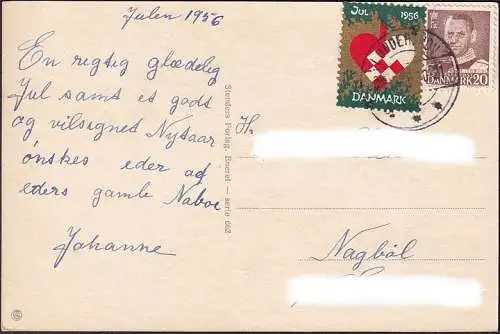 Julen 1956
En rigtig glædelig
Jul samt et godt
og vilsigned Nytaar
ønskes eder af
eders gamle Naboe
Johanne
Stenders Forlag. Eneret — serie 662
JUL 1956
DANMARK
DANMARK 20
H.
Nagbøl